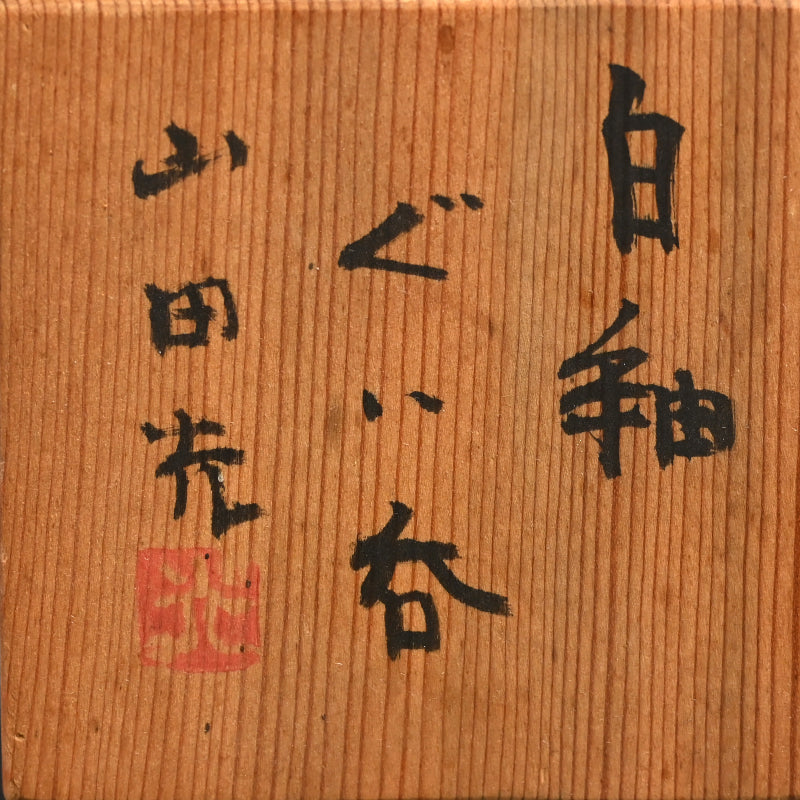 白釉
ぐい呑
山田光
光